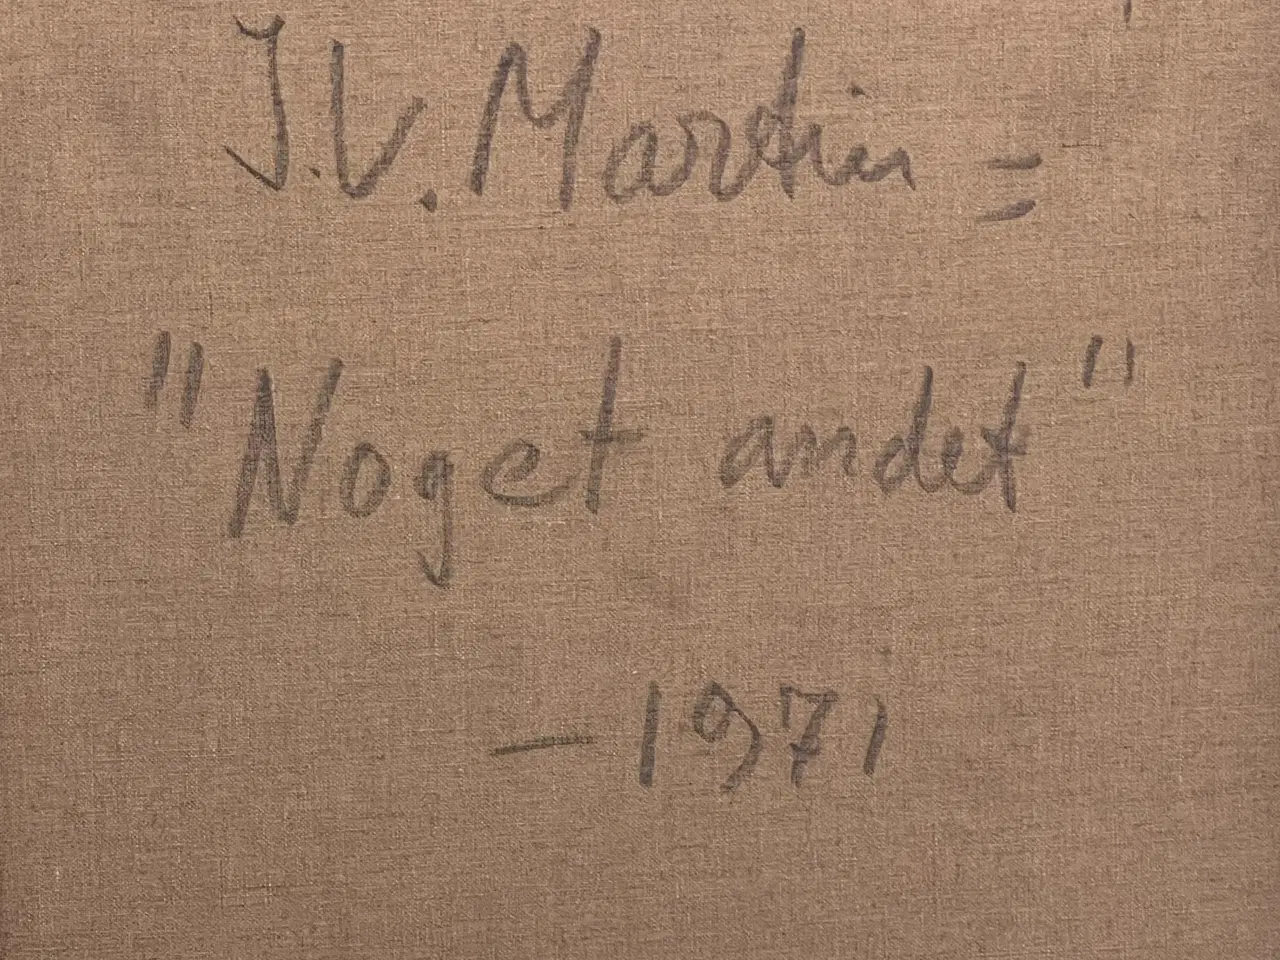 J.V. Martin =
"Noget andet"
— 1971